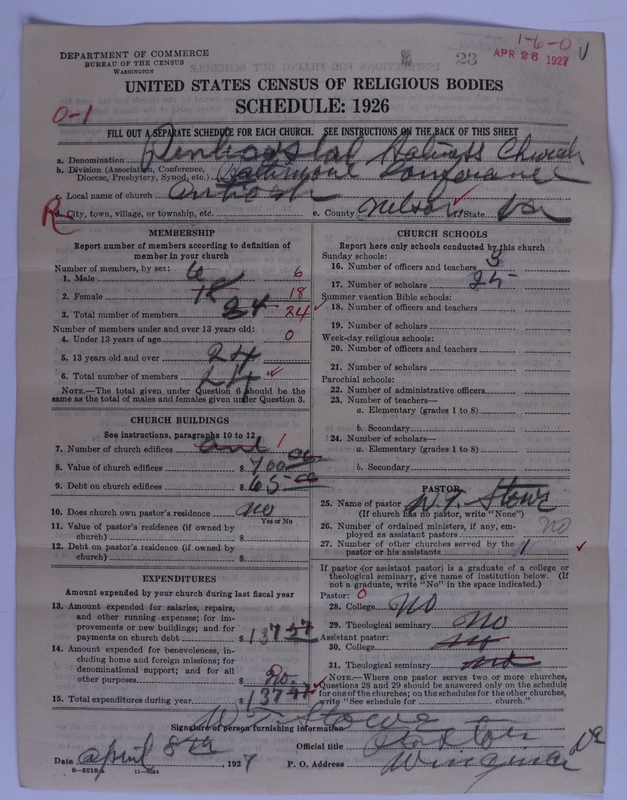 DEPARTMENT OF COMMERCE
BUREAU OF THE CENSUS
WASHINGTON
23
1-6-0
APR 26 1927
UNITED STATES CENSUS OF RELIGIOUS BODIES
SCHEDULE: 1926
0-1
FILL OUT A SEPARATE SCHEDULE FOR EACH CHURCH. SEE INSTRUCTIONS ON THE BACK OF THIS SHEET
a. Denomination Pentecostal Holiness Church
b. Division (Association, Conference, Diocese, Presbytery, Synod, etc.) Baltimore Conference
c. Local name of church Antioch
R d. City, town, village, or township, etc. e. County Nelson f. State Va
MEMBERSHIP
Report number of members according to definition of
member in your church
Number of members, by sex:
1. Male 6 6
2. Female 18 18
3. Total number of members 24 24
Number of members under and over 13 years old:
4. Under 13 years of age 0
5. 13 years old and over 24
6. Total number of members 24
NOTE.—The total given under Question 6 should be the
same as the total of males and females given under Question 3.
CHURCH BUILDINGS
See instructions, paragraphs 10 to 12
7. Number of church edifices 1
8. Value of church edifices $ 700 00
9. Debt on church edifices $ 65 00
10. Does church own pastor's residence? no
Yes or No
11. Value of pastor's residence (if owned by
church) $
12. Debt on pastor's residence (if owned by
church) $
EXPENDITURES
Amount expended by your church during last fiscal year
13. Amount expended for salaries, repairs,
and other running expenses; for im-
provements or new buildings; and for
payments on church debt $ 137
14. Amount expended for benevolences, in-
cluding home and foreign missions; for
denominational support; and for all
other purposes $ no 0
15. Total expenditures during year $ 137
CHURCH SCHOOLS
Report here only schools conducted by this church
Sunday schools:
16. Number of officers and teachers 3
17. Number of scholars 25
Summer vacation Bible schools:
18. Number of officers and teachers
19. Number of scholars
Week-day religious schools:
20. Number of officers and teachers
21. Number of scholars
Parochial schools:
22. Number of administrative officers
23. Number of teachers—
a. Elementary (grades 1 to 8)
b. Secondary
24. Number of scholars—
a. Elementary (grades 1 to 8)
b. Secondary
PASTOR
25. Name of pastor W. T. Stowe
(If church has no pastor, write "None")
26. Number of ordained ministers, if any, em-
ployed as assistant pastors no
27. Number of other churches served by the
pastor or his assistants 1
If pastor (or assistant pastor) is a graduate of a college or
theological seminary, give name of institution below. (If
not a graduate, write "No" in the space indicated.)
Pastor: 0
28. College No
29. Theological seminary No
Assistant pastor:
30. College
31. Theological seminary
NOTE.—Where one pastor serves two or more churches,
Question 28 and 29 should be answered only on the schedule
for one of the churches; on the schedules for the other churches,
write "See schedule for church."
Signature of person furnishing information W T Stowe
Official title Pastor
Date April 8th, 1927 P. O. Address Wingina Va
8-5518a 11-9564